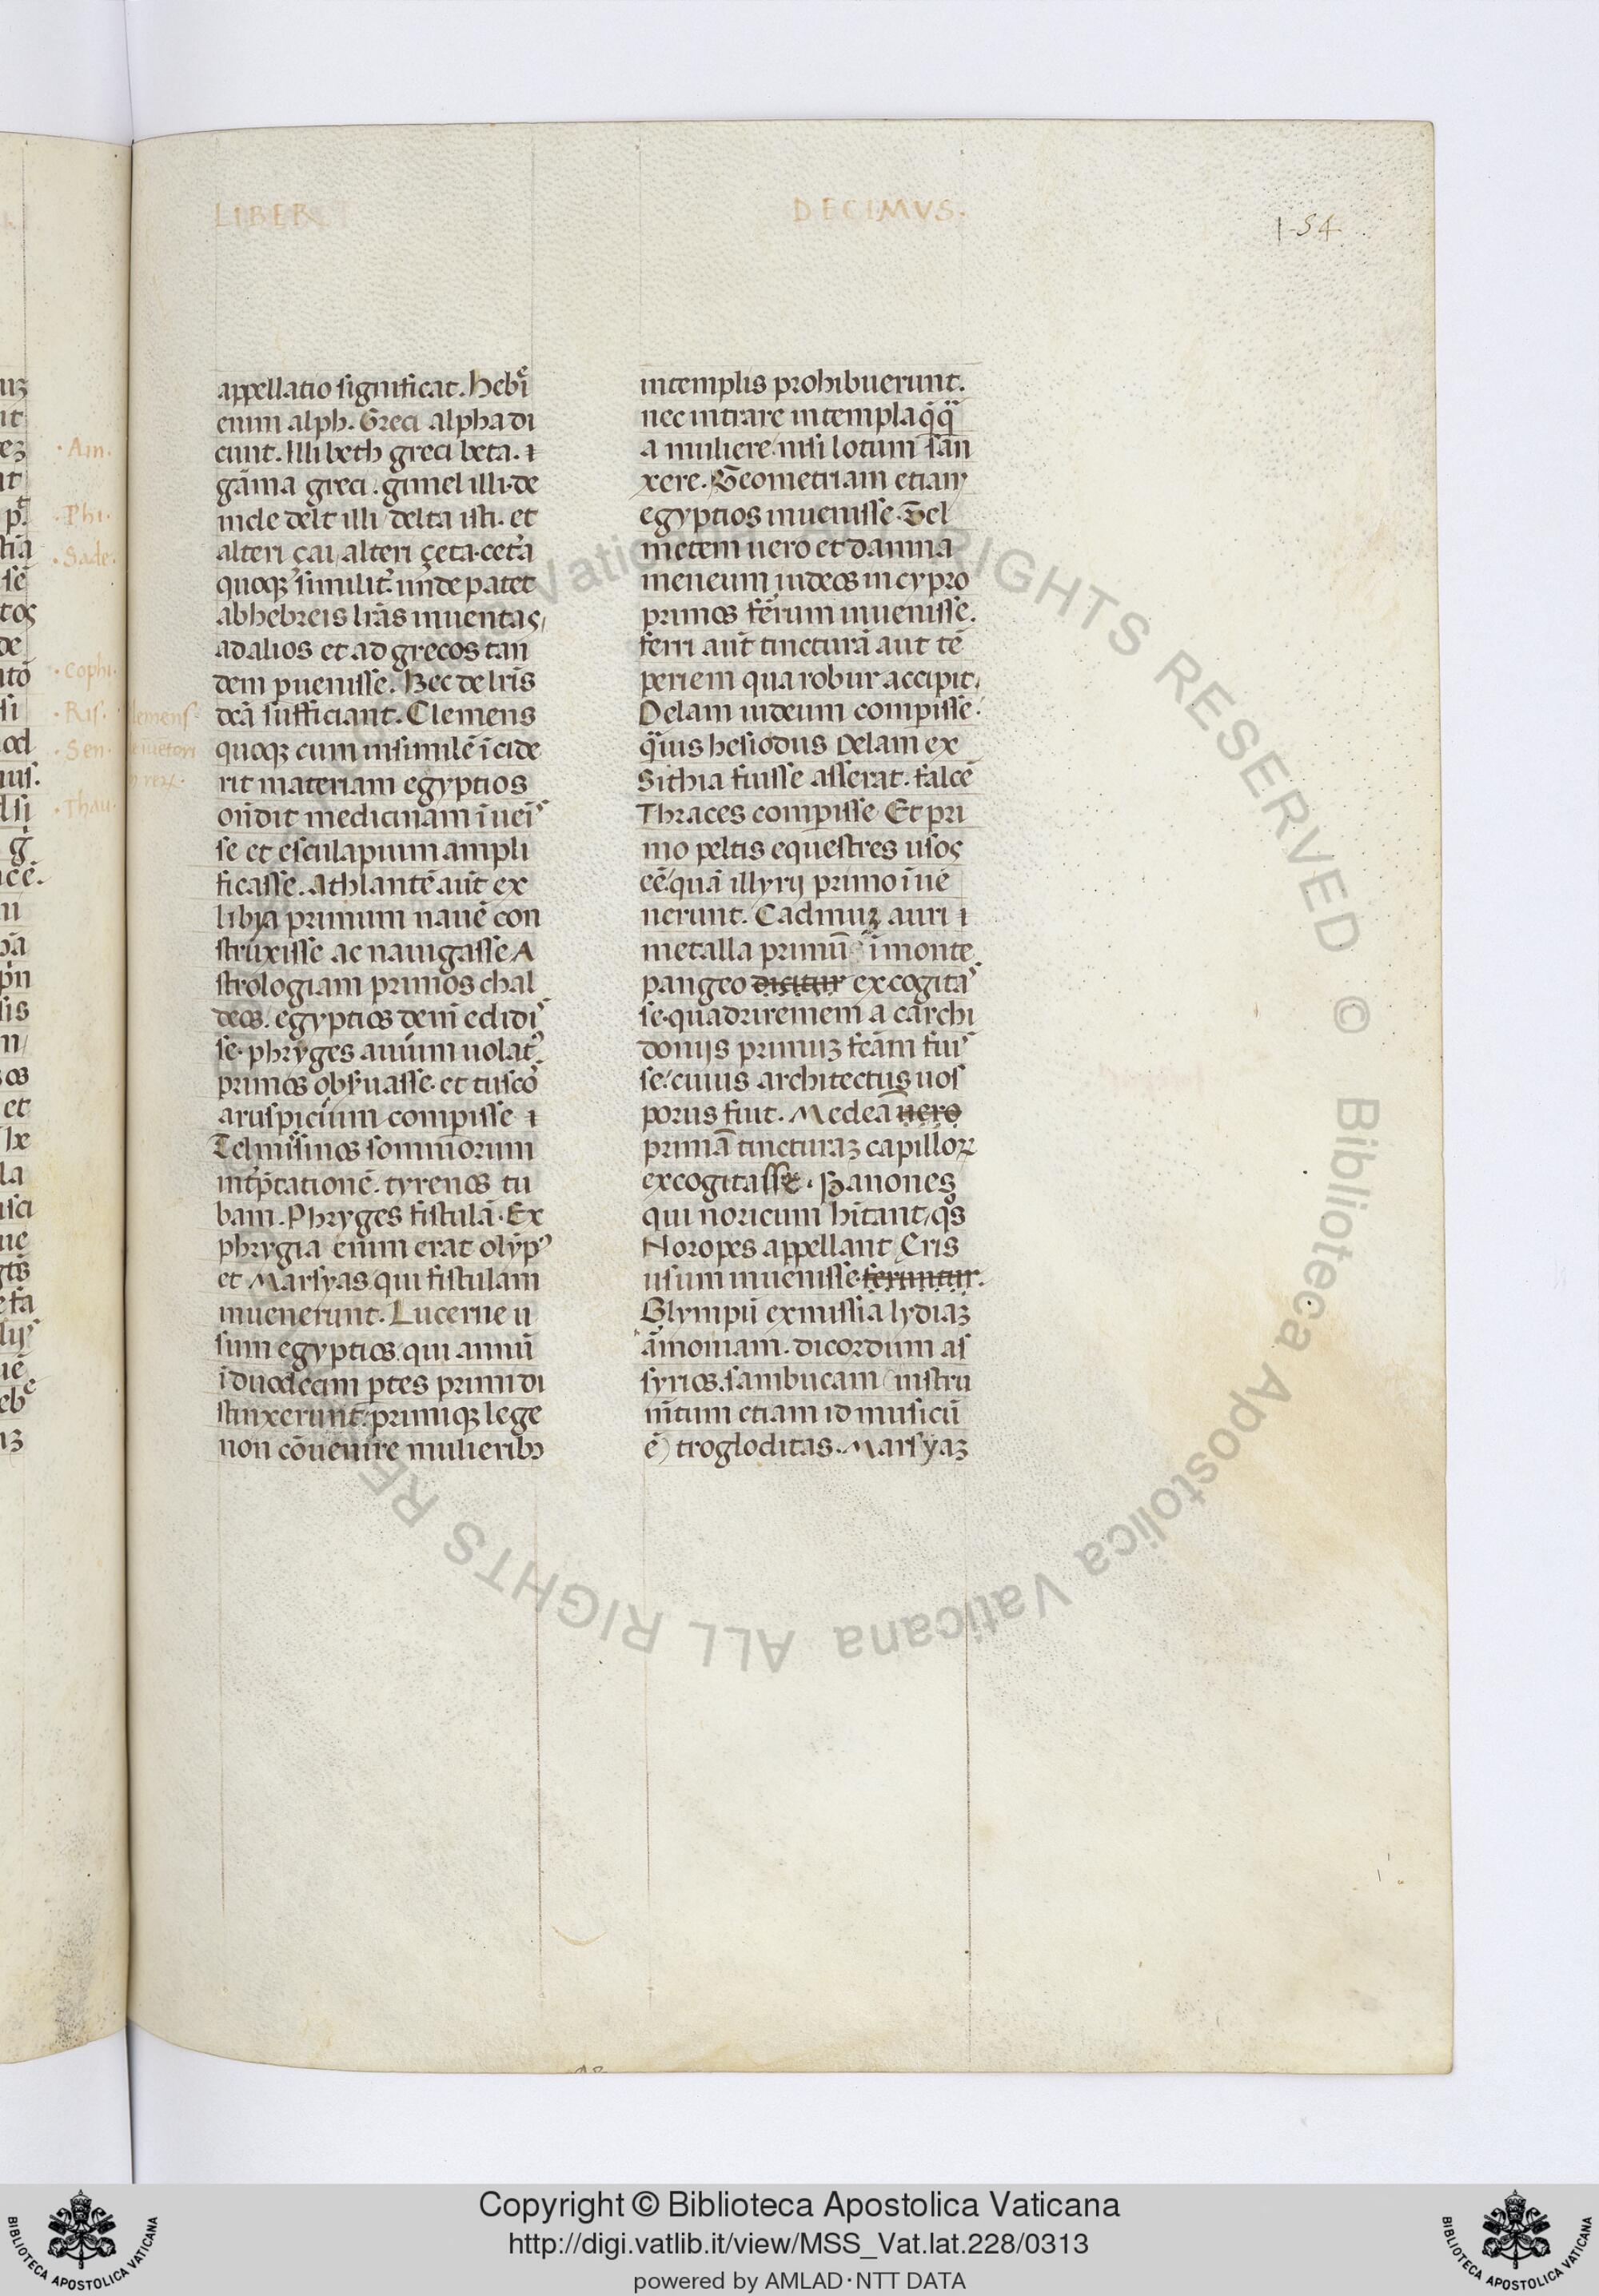 LIBER DECIMVS.
154
appellatio significat. hebi͛
enim alph. Greci alpha di
cunt. Illi beth greci beta. ⁊
gāma greci. gimel illi. de
inde delt illi delta isti. et
alteri çai alteri çeta. cet̉a
quoqꝫ similit̉. unde patet
ab hebreis lr̄as inuentas,
ad alios et ad grecos tan
dem puenisse. Hec de lr̄is
dcā sufficiant. Clemens
quoqꝫ cum in similē ī cide
rit materiam egyptios
on̄dit medicinam īueĩs
se et esculapium ampli
ficasse. Athlantē aut̄ ex
libya primum nauē con
struxisse ac nauigasse A
strologiam primos chal
deos. egyptios dein̄ edidis
se. phryges auium uolat᷒
primos obẜuasse. et tuscoꝝ
aruspicium compisse ⁊
Telmissinos somniorum
int̉p̄tationē. tyrenos tu
bam. Phryges fistulā. Ex
phrygia enim erat olymp᷒
et Marsyas qui fistulam
inuenerunt. Lucerne u
sum egyptios. qui annū
ī duodecim ꝑtes primi di
stinxerunt. primiqꝫ lege
non cōuenire mulieribꝫ
in templis prohibuerunt.
nec intrare in templa q̄qͣ
a muliere. nisi lotum san
xere. Geometriam etiam
egyptios inuenisse. Sel
metem uero et damna
meneum iudeos in cypro
primos ferrum inuenisse.
ferri aut̄ tincturā aut tē
periem qua robur accipit,
Delam iudeum compisse.
qͣuis hesiodus Delam ex
Sithia fuisse asserat. falcē
Thraces compisse. Et pri
mo peltis equestres usos
eē. quā illyrij primo īue
nerunt. Cadmuꝫ auri ⁊
metalla primū ī monte
pangeo dicitur excogitas
se. quadriremem a carchi
donijs primuꝫ fcām fuis
se. cuius architectus uos
porus fuit. Medeā uero
primā tincturaꝫ capilloꝝ
excogitasse. Panones
qui noricum hītant, qͦs
Noropes appellant Eris
usum inuenisse feruntur.
Olympū ex missia lydiaꝫ
āmoniam. dicordum as
syrios. sambucam (instru
mītum etiam id musicū
ē) trogloditas. Marsyaꝫ
· Am ·
· Phi ·
· Sade ·
· Cophi ·
· Ris ·
· Sen ·
· Thau ·
Copyright © Biblioteca Apostolica Vaticana
http://digi.vatlib.it/view/MSS_Vat.lat.228/0313
powered by AMLAD·NTT DATA
BIBLIOTECA APOSTOLICA VATICANA
BIBLIOTECA APOSTOLICA VATICANA
© Biblioteca Apostolica Vaticana ALL RIGHTS RESERVED